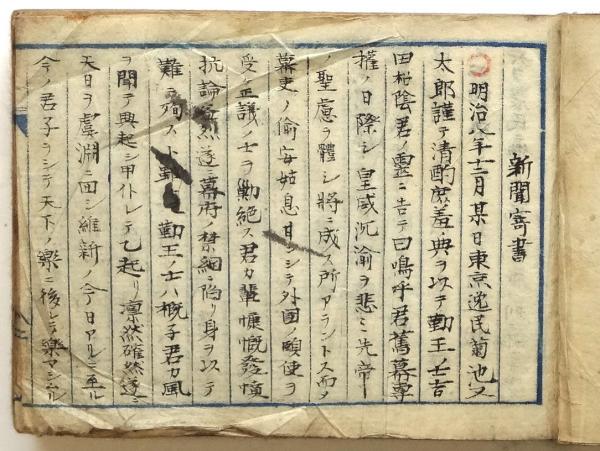 新聞寄書
明治八年十二月某日東京逸民菊池
太郎謹テ清酌庶羞ノ典ヲ以テ勤王ノ士吉
田松陰君ノ靈ニ告テ曰嗚呼君舊幕專
權ノ日際シ皇威沉淪ヲ悲ミ先帝
ノ聖慮ヲ體シ將ニ成ス所アラントス而メ
幕吏ノ偸安姑息甘シシテ外國ノ頤使ヲ
受正議ノ士ヲ勦絶ス君カ輩慷慨發憤
抗論烈遂幕府禁網ニ陷リ身ヲ以テ
難ニ殉ス勤王ノ士ハ概子君カ風
ヲ聞テ興起シ甲仆レテ乙起リ凛然確然遂ニ
天日ヲ虞淵ニ回シ維新ノ今日アルニ至ル
今ノ君子ヲシテ天下ノ樂ニ後レテ樂マシムル